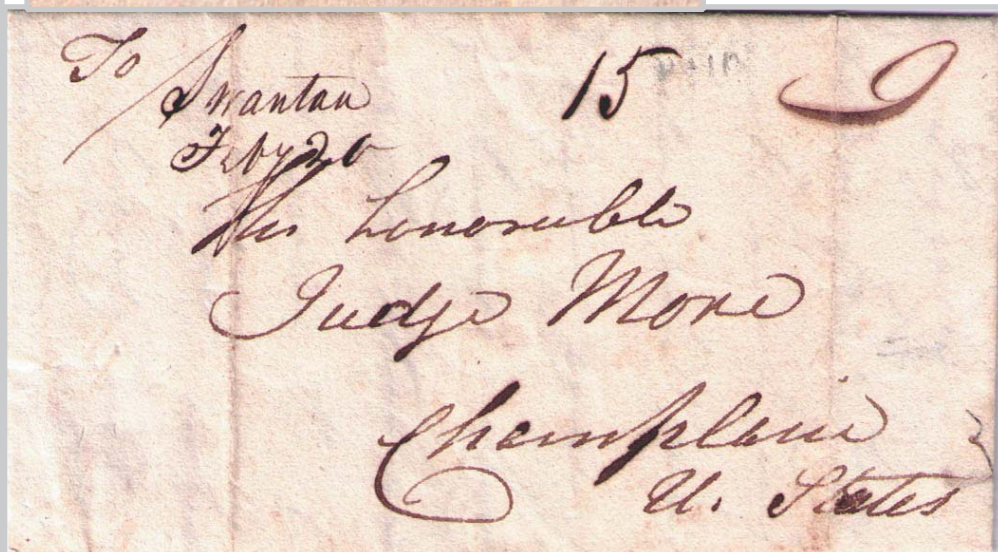 To
Swanton
Feby 20
15 PAID
His Honorable
Judge More
Champlain
U. States